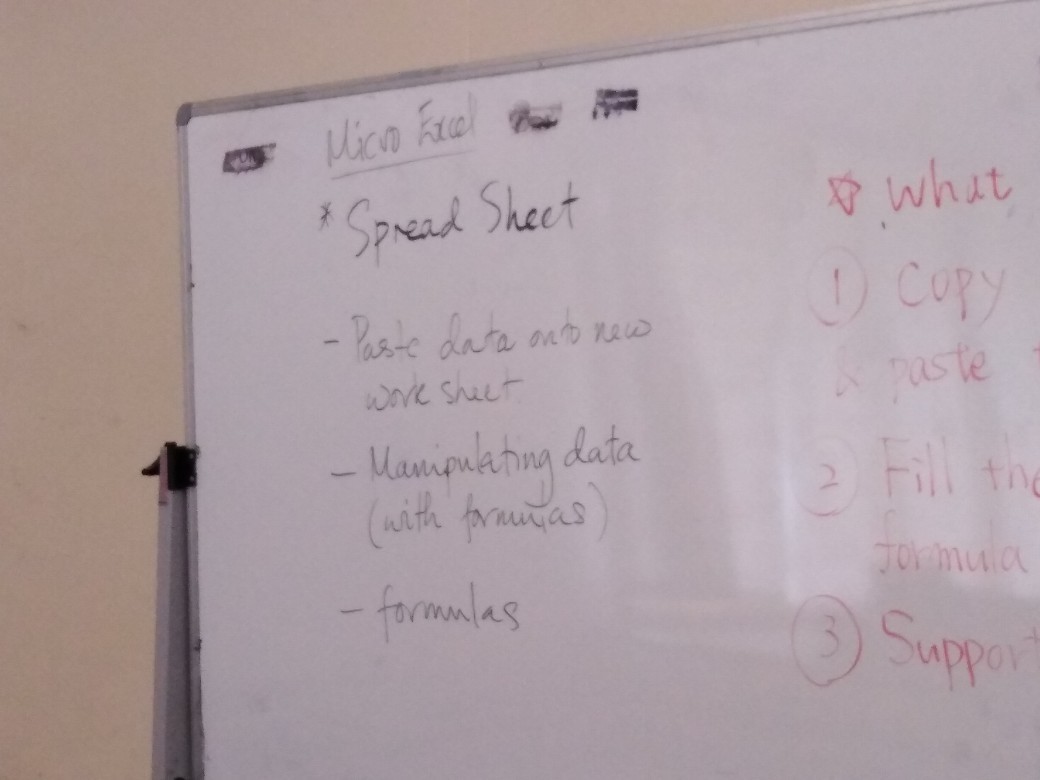 Micro Excel
* Spread Sheet
- Paste data onto new
work sheet.
- Manipulating data
(with formulas)
- formulas
☆ What
① Copy
& paste
② Fill the
formula
③ Support